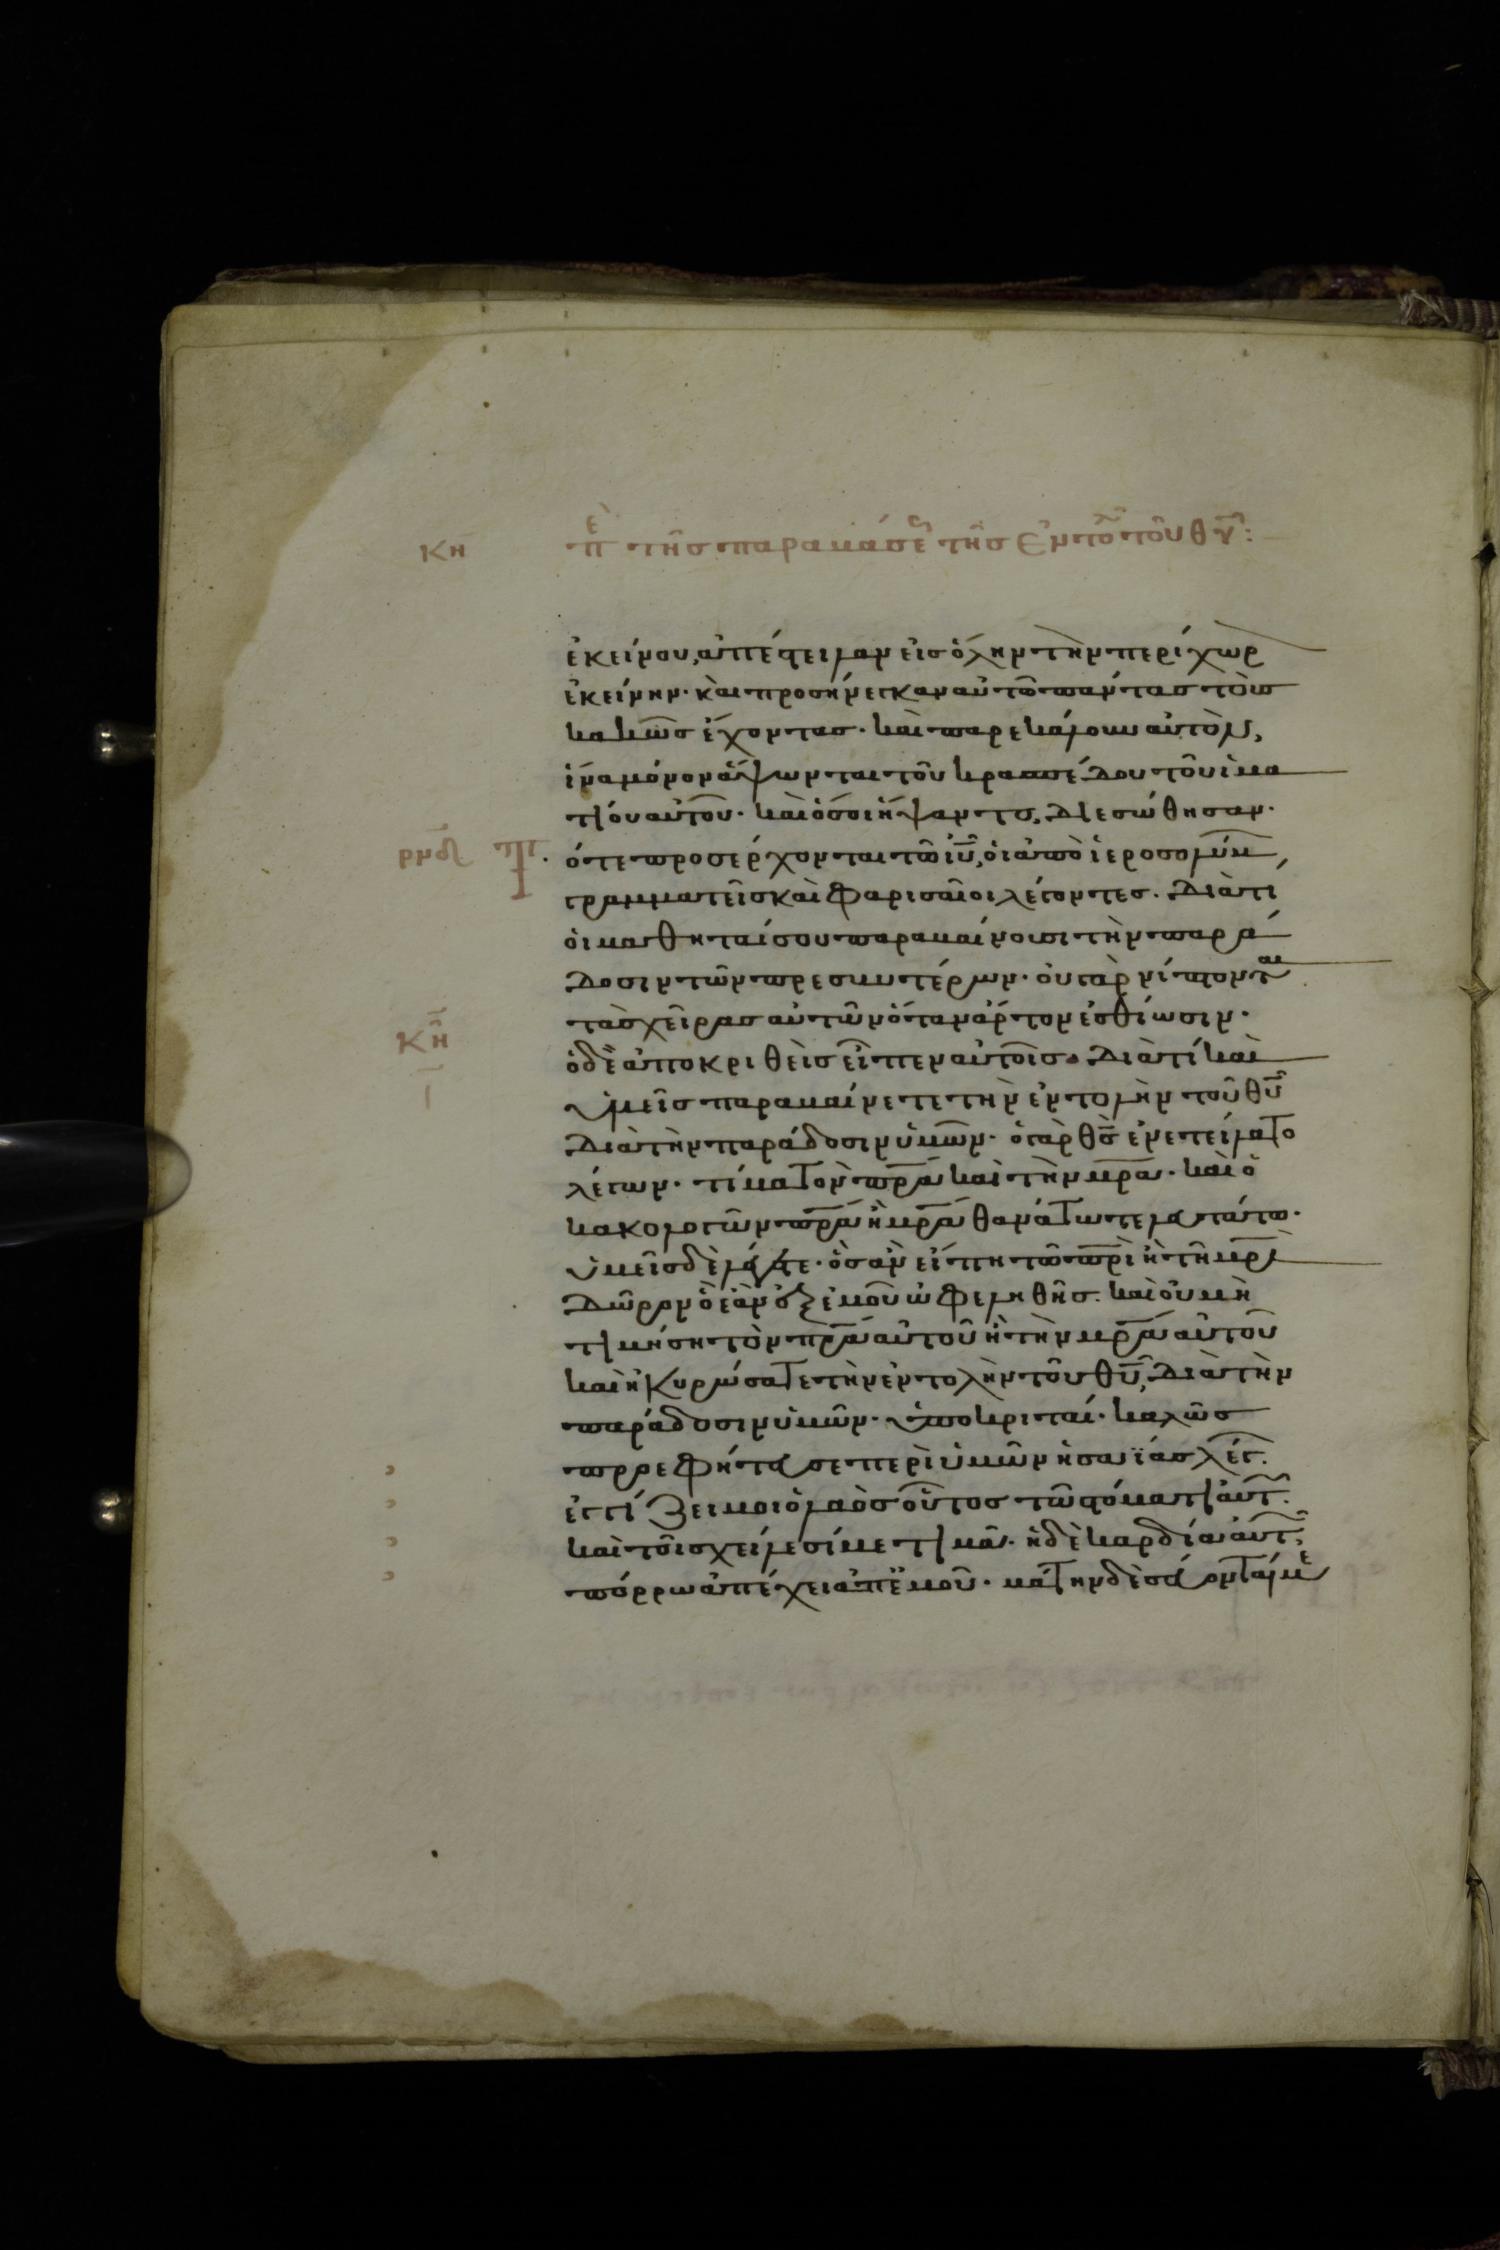 κη πε τῆς παραβάσε τῆς ἐντο τοῦ θυ:
ἐκείνου, ἀπέστειλαν εἰς ὅλην τὴν περίχωρ
ἐκείνην· καὶ προσήνεγκαν αὐτῶ πάντας τοὺς
κακῶς ἔχοντας· καὶ παρεκάλουν αὐτὸν,
ἵνα μόνον ἅψωνται τοῦ κρασπέδου τοῦ ἱμα
τίου αὐτοῦ· καὶ ὅσοι ἥψαντο, διεσώθησαν·
ότε προσέρχονται τῶ ιυ, οἱ ἀπὸ ἱεροσολύμ
γραμματεῖς καὶ φαρισαῖοι λέγοντες· διὰ τί
οἱ μαθηταί σου παραβαίνουσι τὴν παρά
δοσιν τῶν πρεσβυτέρων· οὐ γὰρ νίπτονται
τὰς χεῖρας αὐτῶν ὅταν ἄρτον ἐσθίωσιν·
κη ὁ δὲ ἀποκριθεὶς εἶπεν αὐτοῖς· διὰ τί καὶ
ὑμεῖς παραβαίνετε τὴν ἐντολὴν τοῦ θυ
διὰ τὴν παράδοσιν ὑμῶν· ὁ γὰρ θς ἐνετείλατο
λέγων· τίμα τὸν πρα καὶ τὴν μρα· καὶ ὁ
κακολογῶν πρα ἢ μρα θανάτω τελευτάτω·
ὑμεῖς δὲ λέγετε· ὃς ἂν εἴπη τῶ πρι ἢ τῆ μρι
δῶρον ὃ ἐὰν ἐξ ἐμοῦ ὠφεληθῆς· καὶ οὐ μὴ
τιμήση τὸν πρα αὐτοῦ ἢ τὴν μρα αὐτοῦ
καὶ ἠκυρώσατε τὴν ἐντολὴν τοῦ θυ, διὰ τὴν
παράδοσιν ὑμῶν· ὑποκριταί· καλῶς
προεφήτευσε περὶ ὑμῶν ἠσαΐας λέγ·
ἐγγίζει μοι ὁ λαὸς οὗτος τῶ στόματι αὐτ·
καὶ τοῖς χείλεσί με τιμᾶ· ἡ δὲ καρδία αὐτ,
πόρρω ἀπέχει ἀπ' ἐμοῦ· μάτην δὲ σέβονταί με